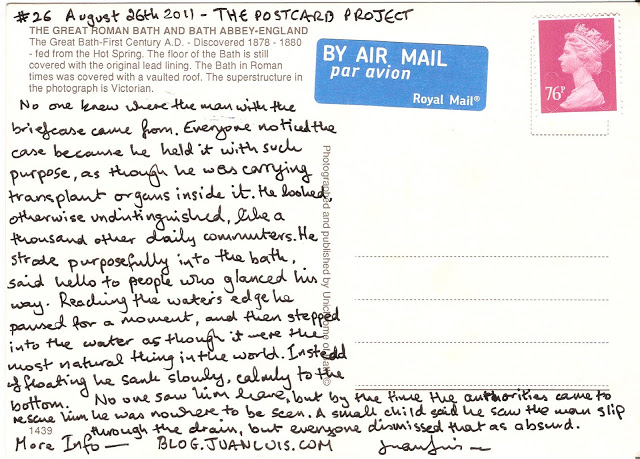 #26 August 26th 2011 - THE POSTCARD PROJECT
THE GREAT ROMAN BATH AND BATH ABBEY-ENGLAND
The Great Bath-First Century A.D. - Discovered 1878 - 1880
- fed from the Hot Spring. The floor of the Bath is still
covered with the original lead lining. The Bath in Roman
times was covered with a vaulted roof. The superstructure in
the photograph is Victorian.
BY AIR MAIL
par avion
Royal Mail®
76P
No one knew where the man with the
briefcase came from. Everyone noticed the
case because he held it with such
purpose, as though he was carrying
transplant organs inside it. He looked,
otherwise undistinguished, like a
thousand other daily commuters. He
strode purposefully into the bath,
said hello to people who glanced his
way. Reaching the water's edge he
paused for a moment, and then stepped
into the water as though it were the
most natural thing in the world. Instead
of floating he sank slowly, calmly to the
bottom. No one saw him leave, but by the time the authorities came to
rescue him he was nowhere to be seen. A small child said he saw the man slip
through the drain, but everyone dismissed that as absurd.
1439
More Info — BLOG.JUANLUIS.COM
Photographed and published by Unichrome of Bath ©